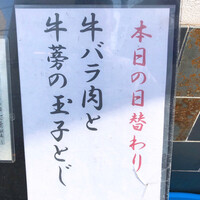 本日の日替わり
牛バラ肉と
牛蒡の玉子とじ